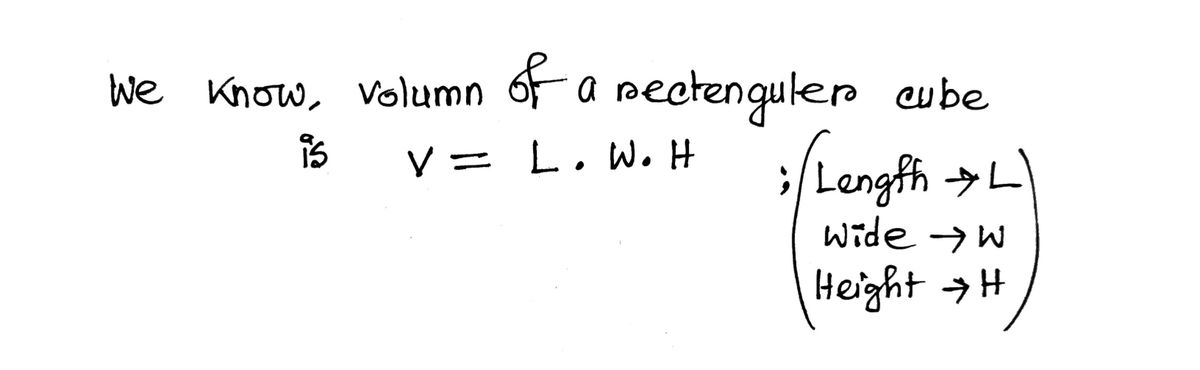 We Know, Volumn of a rectenguler cube
is V = L. W. H
; (Length → L
Wide → W
Height → H)